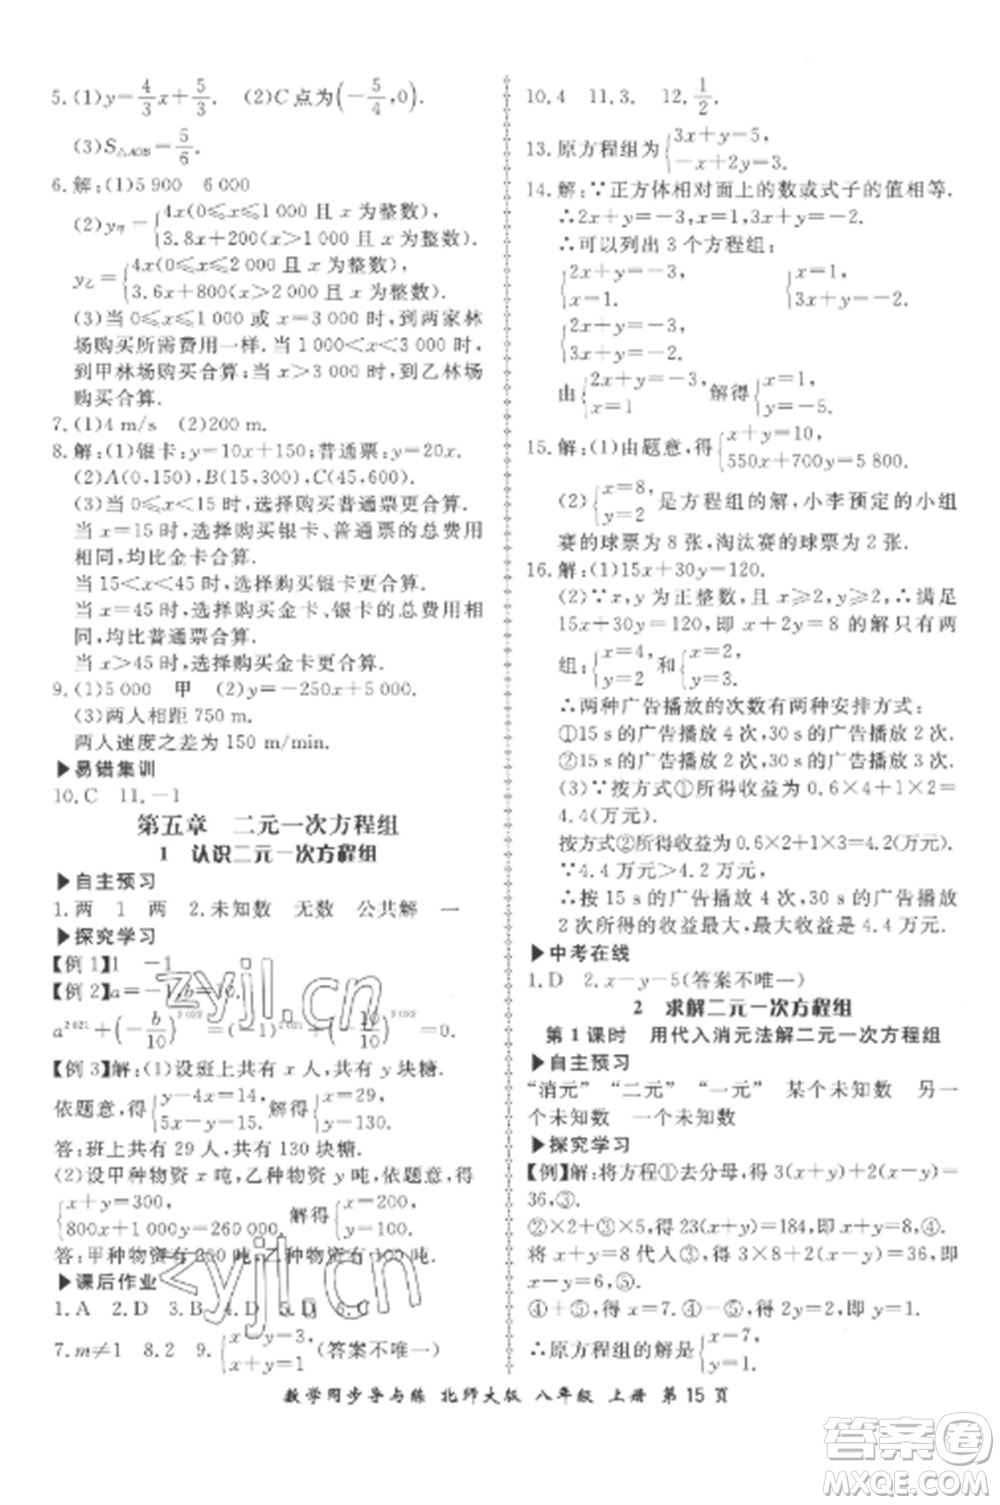 5. (1)y=4/3x+5/3 (2)C点为(-5/4,0).
(3)S△AOB=5/6.
6. 解:(1)5 900 6 000
(2)y甲={4x(0≤x≤1 000 且 x 为整数),
3.8x+200(x>1 000 且 x 为整数).
y乙={4x(0≤x≤2 000 且 x 为整数),
3.6x+800(x>2 000 且 x 为整数).
(3)当 0≤x≤1 000 或 x=3 000 时,到两家林
场购买所需费用一样.当 1 000<x<3 000 时,
到甲林场购买合算;当 x>3 000 时,到乙林场
购买合算.
7. (1)4 m/s (2)200 m.
8. 解:(1)银卡:y=10x+150;普通票:y=20x.
(2)A(0,150),B(15,300),C(45,600).
(3)当 0<x<15 时,选择购买普通票更合算.
当 x=15 时,选择购买银卡、普通票的总费用
相同,均比金卡合算.
当 15<x<45 时,选择购买银卡更合算.
当 x=45 时,选择购买金卡、银卡的总费用相
同,均比普通票合算.
当 x>45 时,选择购买金卡更合算.
9. (1)5 000 甲 (2)y=-250x+5 000.
(3)两人相距 750 m.
两人速度之差为 150 m/min.
▶易错集训
10. C 11. -1
第五章 二元一次方程组
1 认识二元一次方程组
▶自主预习
1. 两 1 两 2. 未知数 无数 公共解 一
▶探究学习
【例 1】1 -1
【例 2】a=-1,b=10.
a^2 021+(-b/10)^2 022=(-1)^2 021+(-10/10)^2 022=0.
【例 3】解:(1)设班上共有 x 人,共有 y 块糖.
依题意,得{y-4x=14,
5x-y=15. 解得{x=29,
y=130.
答:班上共有 29 人,共有 130 块糖.
(2)设甲种物资 x 吨,乙种物资 y 吨,依题意,得
{x+y=300,
800x+1 000y=260 000, 解得{x=200,
y=100.
答:甲种物资有 200 吨,乙种物资有 100 吨.
▶课后作业
1. A 2. D 3. B 4. D 5. D 6. C
7. m≠1 8. 2 9. {x+y=3,
x-y=1 (答案不唯一)
10. 4 11. 3. 12. 1/2.
13. 原方程组为{3x+y=5,
-x+2y=3.
14. 解:∵正方体相对面上的数或式子的值相等.
∴2x+y=-3,x=1,3x+y=-2.
∴可以列出 3 个方程组:
{2x+y=-3,
x=1. {x=1,
3x+y=-2.
{2x+y=-3,
3x+y=-2.
由{2x+y=-3,
x=1 解得{x=1,
y=-5.
15. 解:(1)由题意,得{x+y=10,
550x+700y=5 800.
(2){x=8,
y=2 是方程组的解,小李预定的小组
赛的球票为 8 张,淘汰赛的球票为 2 张.
16. 解:(1)15x+30y=120.
(2)∵x,y 为正整数,且 x≥2,y≥2,∴满足
15x+30y=120,即 x+2y=8 的解只有两
组:{x=4,
y=2 和{x=2,
y=3.
∴两种广告播放的次数有两种安排方式:
①15 s 的广告播放 4 次,30 s 的广告播放 2 次.
②15 s 的广告播放 2 次,30 s 的广告播放 3 次.
(3)∵按方式①播放所得的收益为 0.6×4+1×2=
4.4(万元).
按方式②播放所得的收益为 0.6×2+1×3=4.2(万元).
∵4.4 万元>4.2 万元,
∴按 15 s 的广告播放 4 次,30 s 的广告播放
2 次所得的收益最大,最大收益是 4.4 万元.
▶中考在线
1. D 2. x-y=5(答案不唯一)
2 求解二元一次方程组
第 1 课时 用代入消元法解二元一次方程组
▶自主预习
“消元” “二元” “一元” 某个未知数 另一
个未知数 一个未知数
▶探究学习
【例】解:将方程①去分母,得 3(x+y)+(x-y)=
36,③.
②×2+③×5,得 23(x+y)=184,即 x+y=8,④.
将 x+y=8 代入③,得 3×8+x-y=36,
x-y=6,⑤.
④+⑤,得 x=7.④-⑤,得 2y=2,即 y=1.
∴原方程组的解是{x=7,
y=1.
数学同步导与练 北师大版 八年级 上册 第 15 页
zyjl.cn
zyjl.cn
答案圈
MXQE.COM